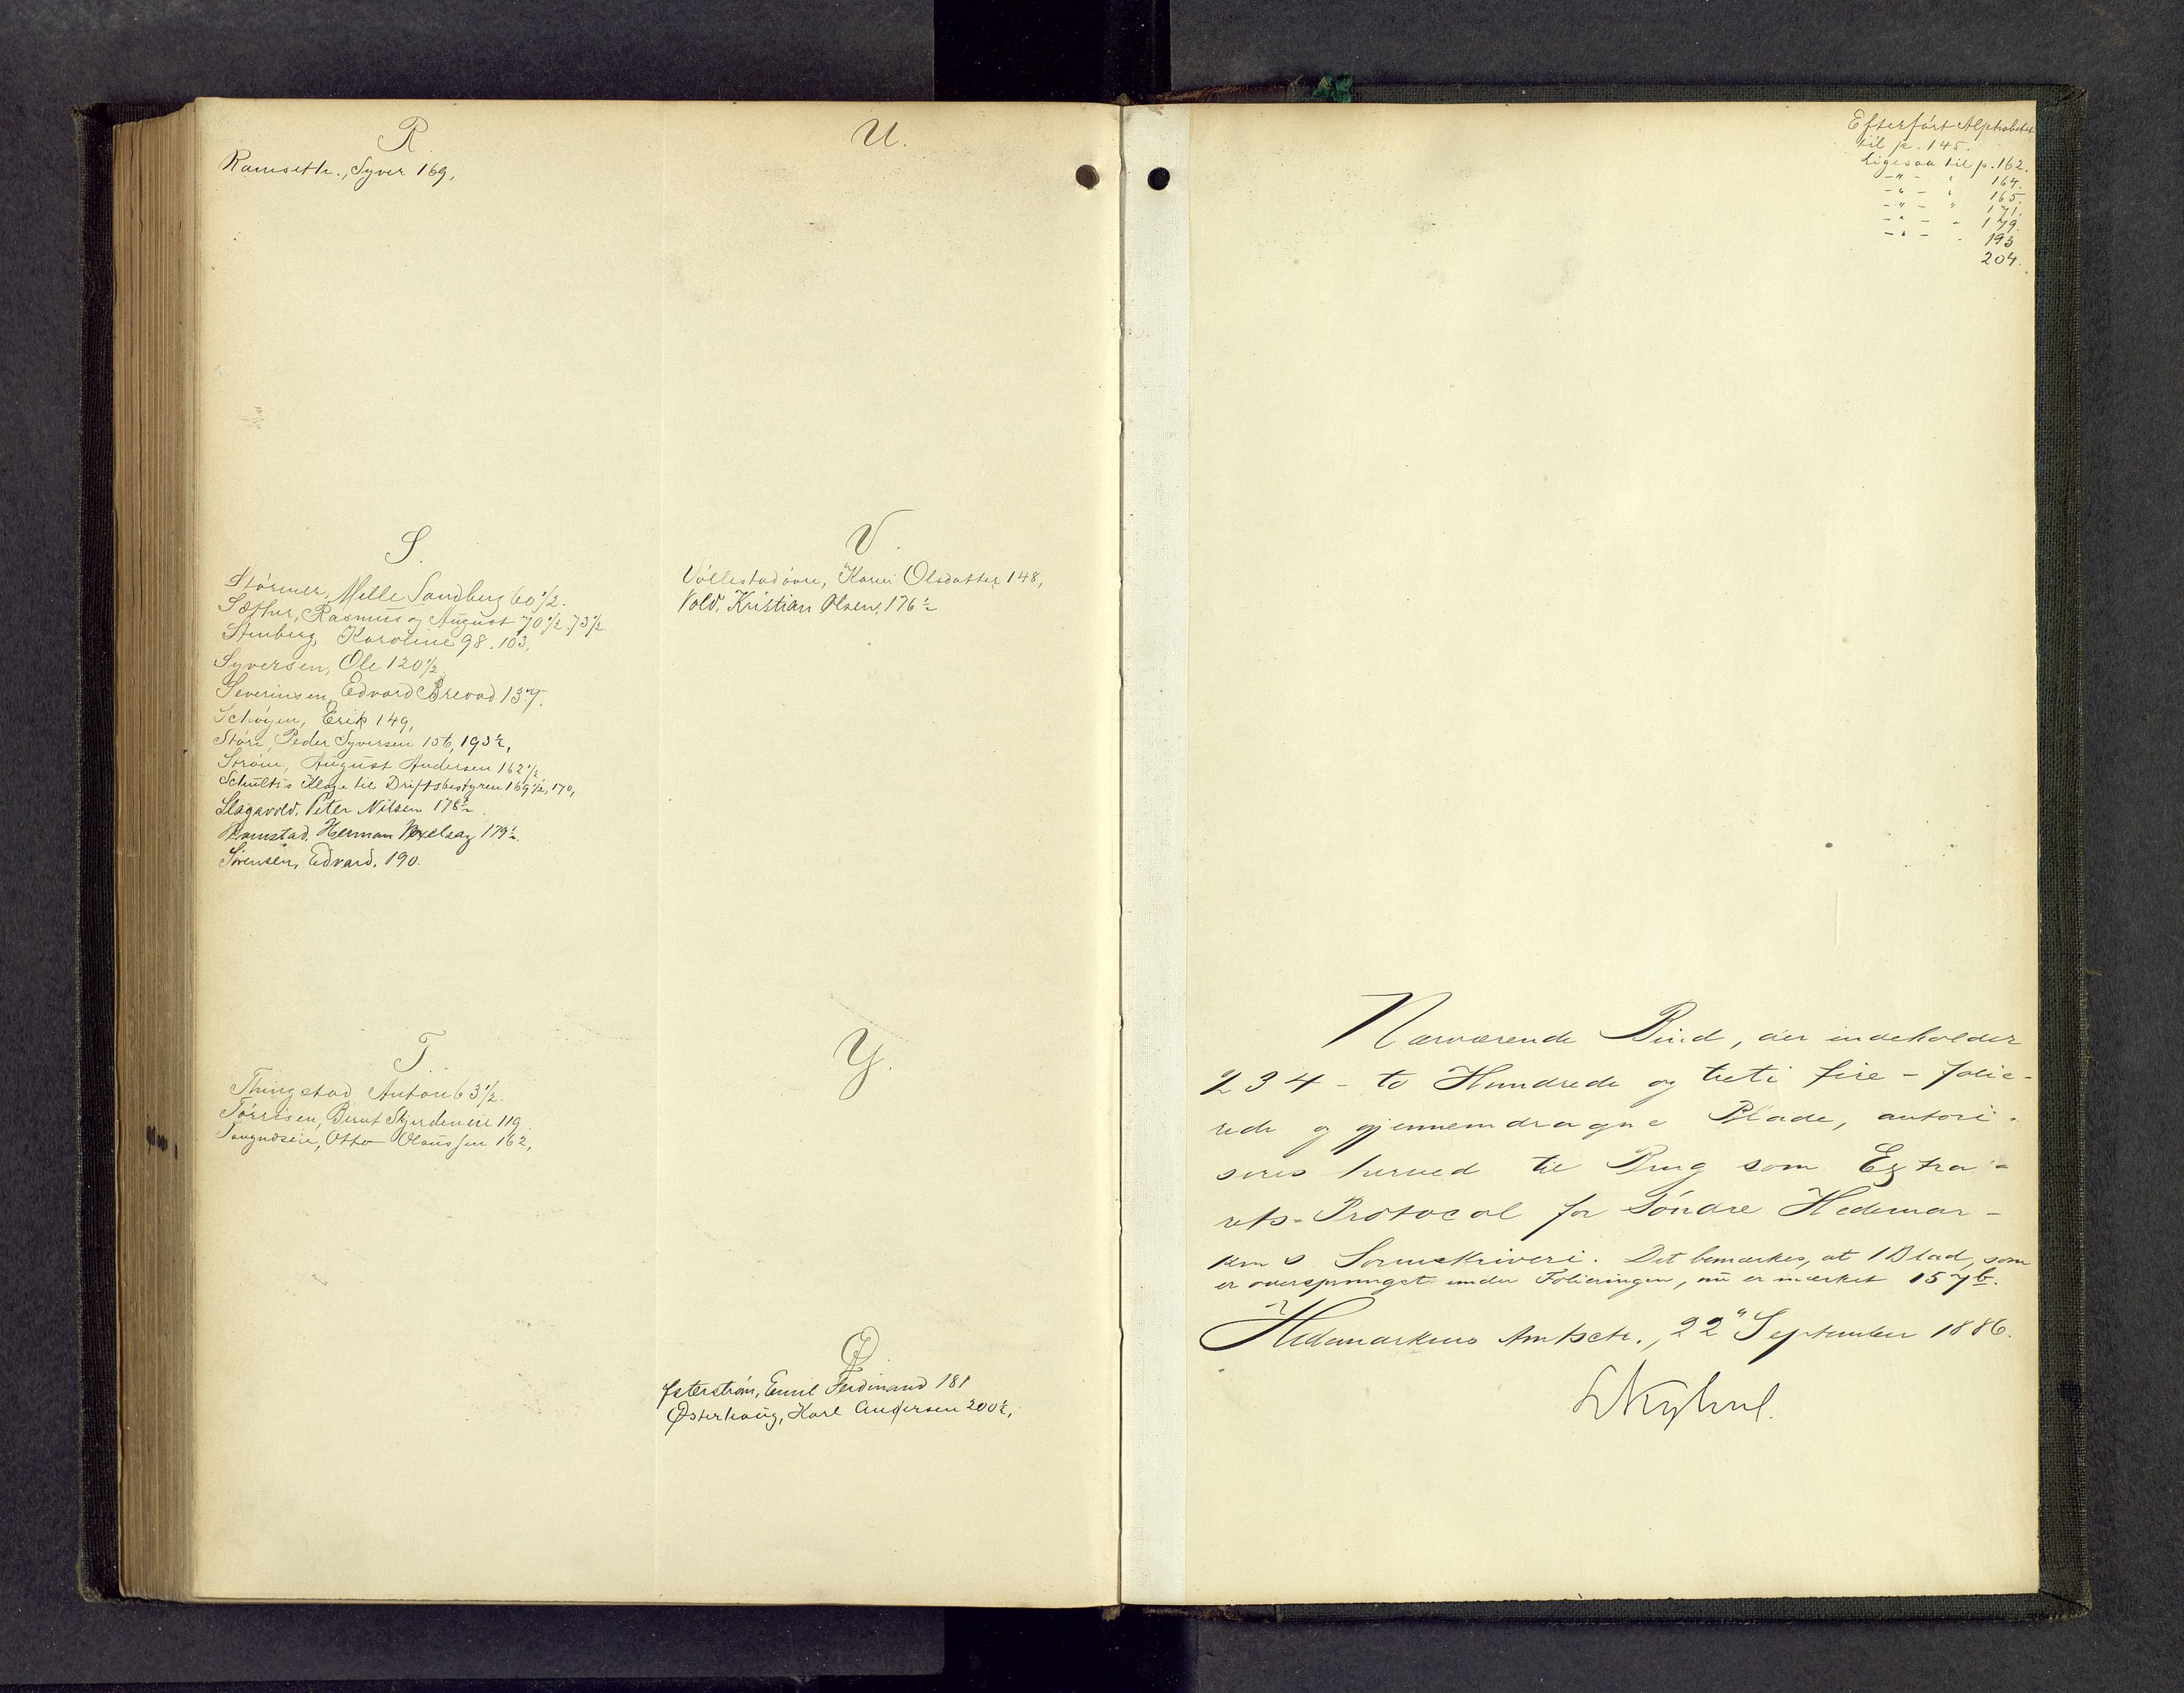 R
Ramseth., Syver 169,
S.
Störmer, Mille Sandberg 60 1/2.
Sæther, Rasmus og August 70 1/2. 73 1/2
Stenberg, Karoline 98. 103,
Syversen, Ole 120 1/2
Severinsen, Edvard Brevad 137.
Schøyen, Erik 149,
Störe, Peder Syversen 156, 193 1/2,
Ström, August Andersen 162 1/2
Schultz's Klage til Driftsbestyren 169 1/2, 170,
Slagsvold, Peter Nilsen 178 1/2
Herman 179 1/2
Sørensen, Edvard, 190.
T.
Thingstad Anton 63 1/2.
Törrisen, Bernt Skjerdeneie 119
Otto Olaussen 162,
U.
V.
Karen Olsdatter 148,
Vold, Kristian Olsen, 176 1/2
Y.
Ø
Østerström, Emil Ferdinand 181
Østerhaug, Karl Andersen 200 1/2,
Efterført Alphabetet
til p. 145.
ligesaa til p. 162.
-"- " 164.
-"- " 165.
-"- " 171.
-"- - 179.
-"- - 193
204.
Nærværende Bind, der indeholder
234 - to Hundrede og treti fire - folie-
rede og gjennemdragne Blade, autori-
seres herved til Brug som Extra-
rets-Protocol for Söndre Hedemar-
kens Sorenskriveri. Det bemærkes, at 1 Blad, som
er oversprunget under Folieringen, nu er mærket 157b.
Hedemarkens Amtsctr., 22" September 1886.